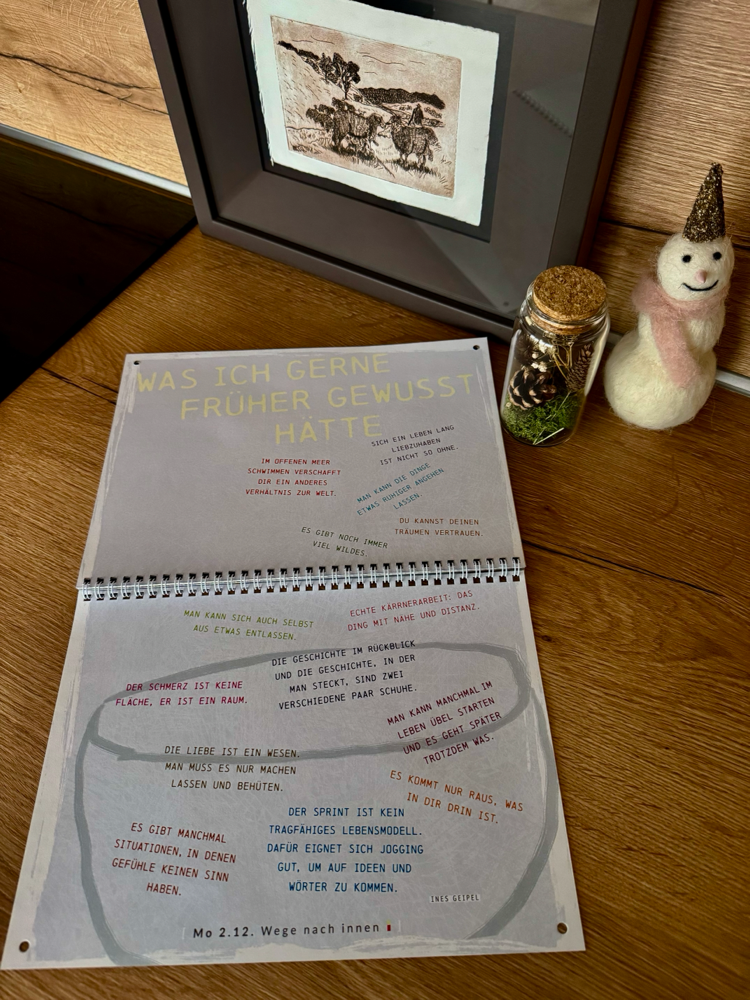 WAS ICH GERNE
FRÜHER GEWUSST
HÄTTE
SICH EIN LEBEN LANG
LIEBZUHABEN
IST NICHT SO OHNE.
IM OFFENEN MEER
SCHWIMMEN VERSCHAFFT
DIR EIN ANDERES
VERHÄLTNIS ZUR WELT.
MAN KANN DIE DINGE
ETWAS RUHIGER ANGEHEN
LASSEN.
DU KANNST DEINEN
TRÄUMEN VERTRAUEN.
ES GIBT NOCH IMMER
VIEL WILDES.
MAN KANN SICH AUCH SELBST
AUS ETWAS ENTLASSEN.
ECHTE KÄRRNERARBEIT: DAS
DING MIT NÄHE UND DISTANZ.
DIE GESCHICHTE IM RÜCKBLICK
UND DIE GESCHICHTE, IN DER
MAN STECKT, SIND ZWEI
VERSCHIEDENE PAAR SCHUHE.
DER SCHMERZ IST KEINE
FLÄCHE, ER IST EIN RAUM.
MAN KANN MANCHMAL IM
LEBEN ÜBEL STARTEN
UND ES GEHT SPÄTER
TROTZDEM WAS.
DIE LIEBE IST EIN WESEN.
MAN MUSS ES NUR MACHEN
LASSEN UND BEHÜTEN.
ES KOMMT NUR RAUS, WAS
IN DIR DRIN IST.
ES GIBT MANCHMAL
SITUATIONEN, IN DENEN
GEFÜHLE KEINEN SINN
HABEN.
DER SPRINT IST KEIN
TRAGFÄHIGES LEBENSMODELL.
DAFÜR EIGNET SICH JOGGING
GUT, UM AUF IDEEN UND
WÖRTER ZU KOMMEN.
INES GEIPEL
Mo 2.12. Wege nach innen